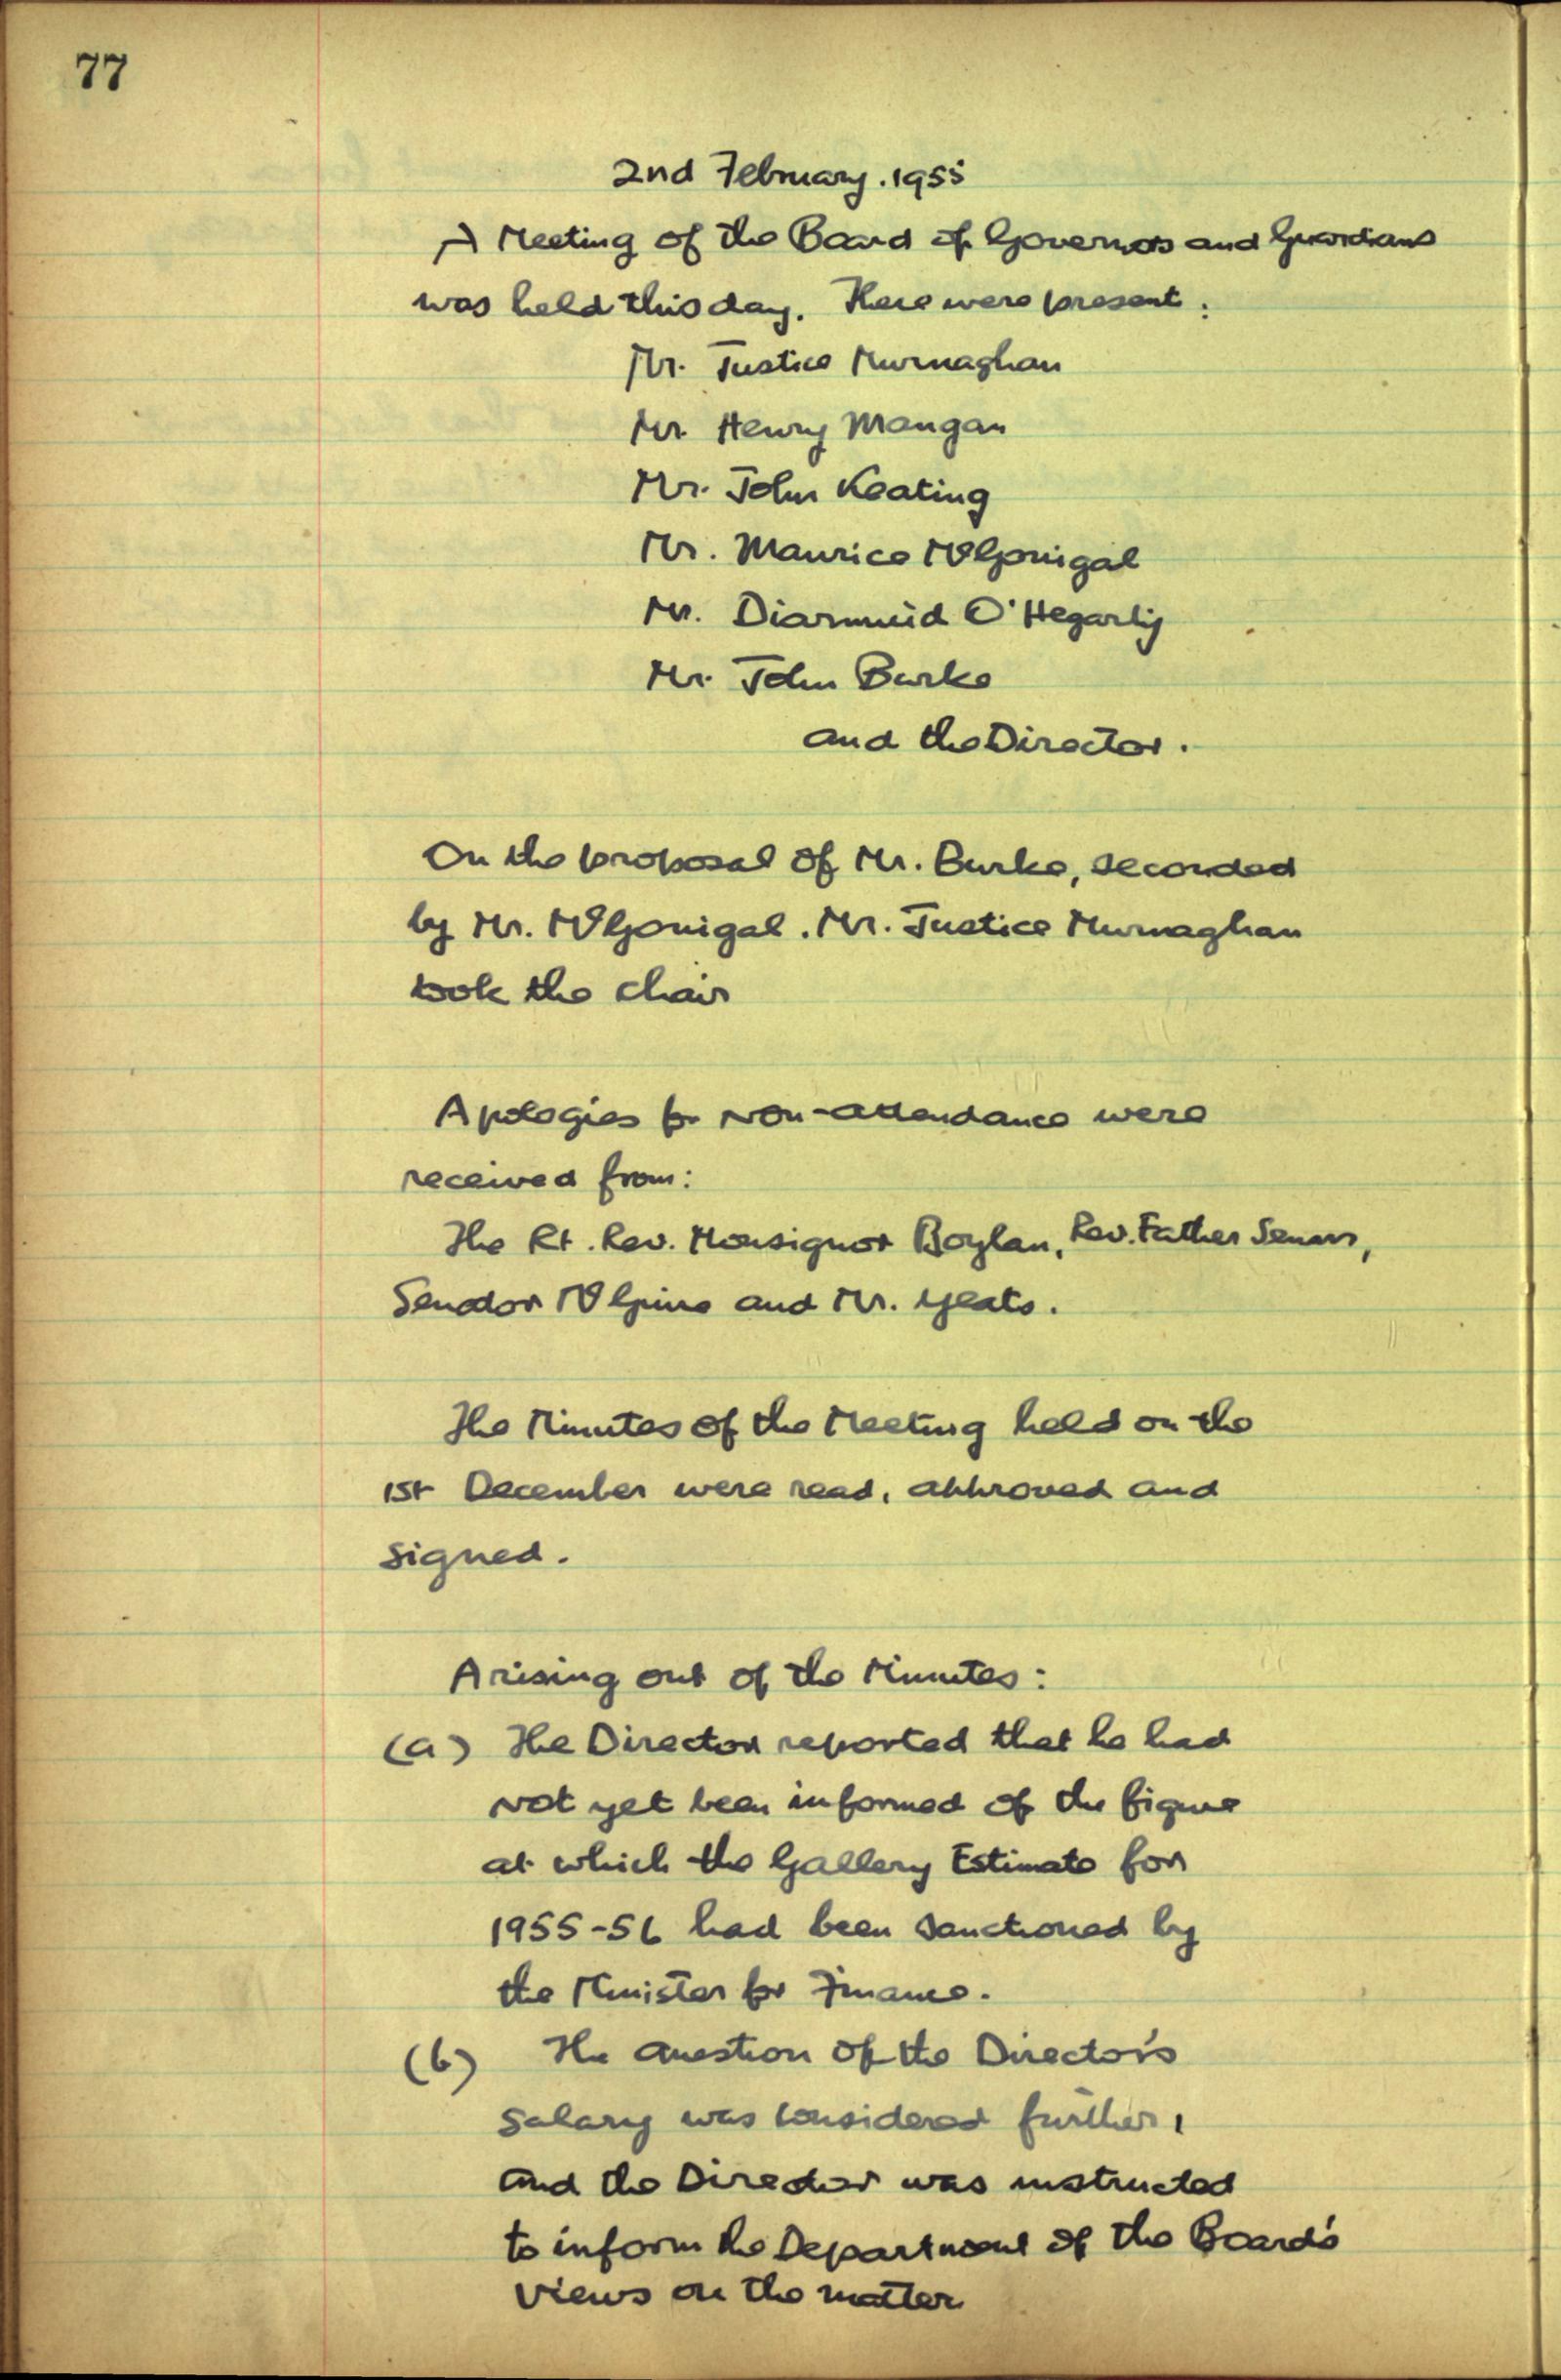 77
2nd February. 1955
A Meeting of the Board of Governors and Guardians
was held this day. There were present:
Mr. Justice Murnaghan
Mr. Henry Mangan
Mr. John Keating
Mr. Maurice McGonigal
Mr. Diarmuid O'Hegarty
Mr. John Burke
and the Director.
On the proposal of Mr. Burke, seconded
by Mr. McGonigal. Mr. Justice Murnaghan
took the chair
Apologies for non-attendance were
received from:
The Rt. Rev. Monsignor Boylan, Rev. Father Senan,
Senator McGuire and Mr. Yeats.
The Minutes of the Meeting held on the
1st December were read, approved and
signed.
Arising out of the Minutes:
(a) The Director reported that he had
not yet been informed of the figure
at which the Gallery Estimate for
1955-56 had been sanctioned by
the Minister for Finance.
(b) The question of the Director's
salary was considered further,
and the Director was instructed
to inform the Department of the Board's
views on the matter